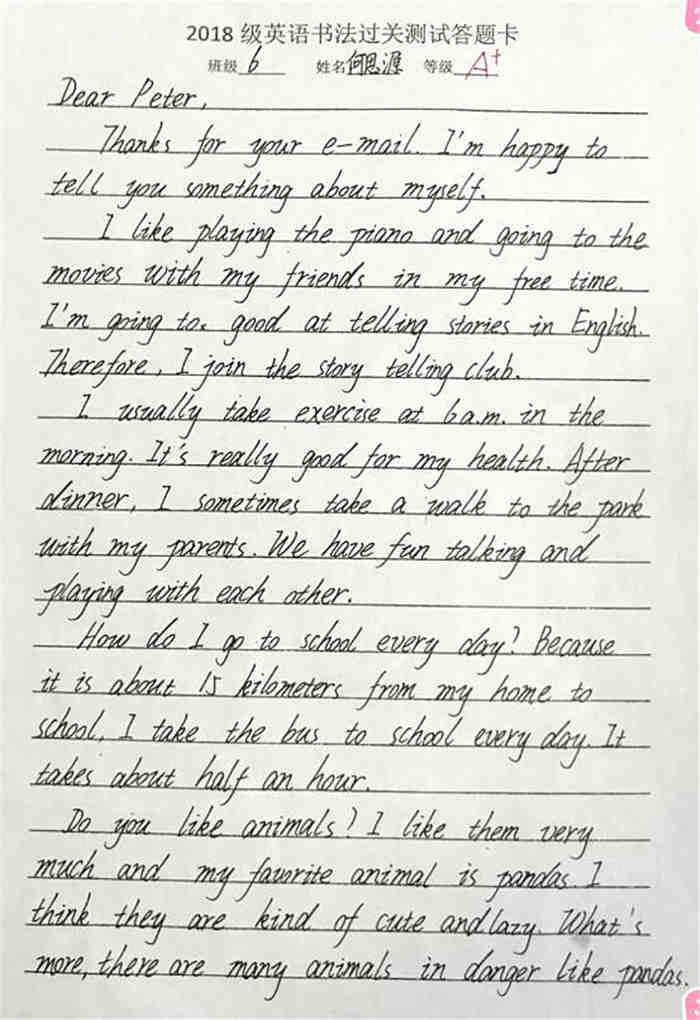 2018 级英语书法过关测试答题卡
班级 6 姓名 何思源 等级 A+
Dear Peter,
Thanks for your e-mail. I'm happy to
tell you something about myself.
I like playing the piano and going to the
movies with my friends in my free time.
I'm going to. good at telling stories in English.
Therefore, I join the story telling club.
I usually take exercise at 6 a.m. in the
morning. It's really good for my health. After
dinner, I sometimes take a walk to the park
with my parents. We have fun talking and
playing with each other.
How do I go to school every day? Because
it is about 15 kilometers from my home to
school, I take the bus to school every day. It
takes about half an hour.
Do you like animals? I like them very
much and my favorite animal is pandas. I
think they are kind of cute and lazy. What's
more, there are many animals in danger like pandas.